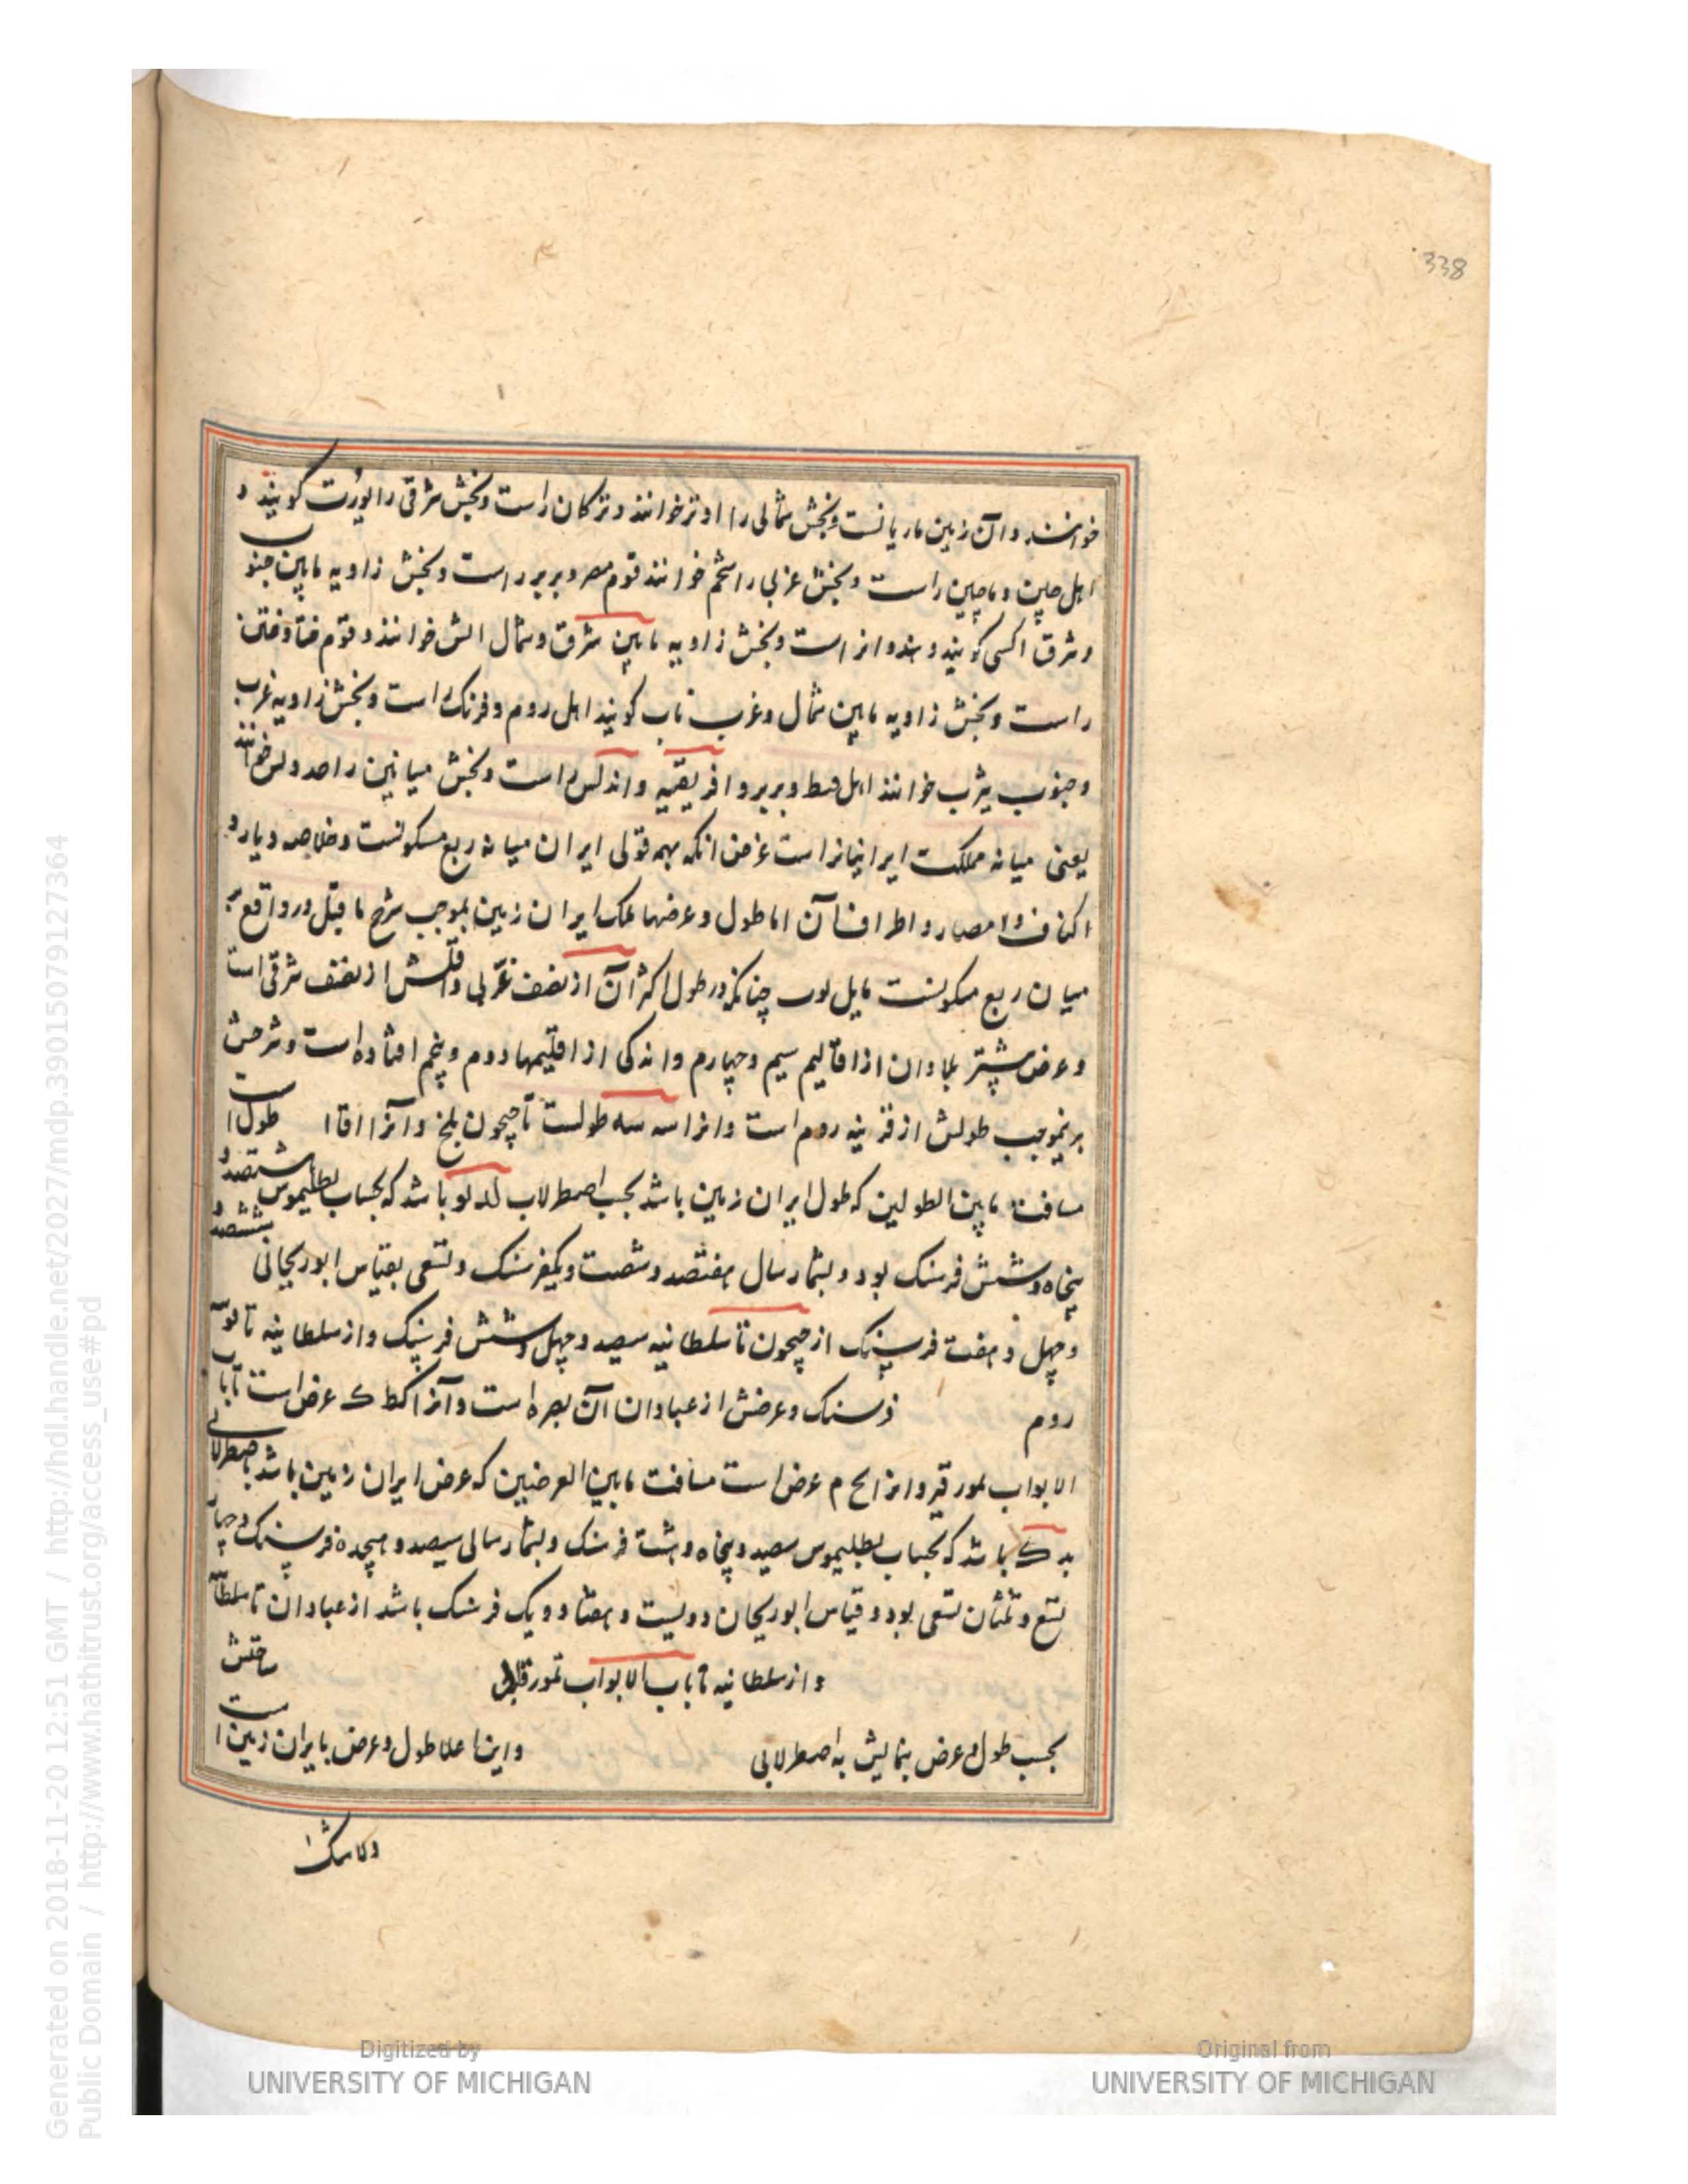 338
خوانند و آن زمین ماریانست و بخش شمالی را اوتر خوانند و ترکان راست و بخش شرقی را بورت کویند و
اهل چین و ماچین راست و بخش غربی را سخم خوانند قوم مصر و بربر راست و بخش زاویه مابین جنوب
و شرق اکسی کویند و هندوانراست و بخش زاویه مابین شرق و شمال الش خوانند و قوم ختا و ختن
راست و بخش زاویه مابین شمال و غرب ناب کویند اهل روم و فرنک راست و بخش زاویه غرب
و جنوب یثرب خوانند اهل قبط و بربر و افریقیه و اندلس راست و بخش میانین را خوانند
یعنی میانه مملکت ایرانیانراست غرض انکه بهمه قولی ایران میانه ربع مسکونست و خلاصه دیار و
اکناف و امصار و اطراف آن اما طول و عرضها ملک ایران زمین بموجب شرح ماقبل در واقع
میان ربع مسکونست مایل چنانکه در طول اکثر آن از نصف غربی و اقلش از نصف شرقی است
و عرض بیشتر بلادان از اقالیم سیم و چهارم و اندکی از اقلیمها دوم و پنجم افتاده است و شرحش
برینموجب طولش از قونیه روم است و انرا سه طولست تا جیحون بلخ و آنرا اقا طول است
مسافت مابین الطولین که طول ایران زمین باشد بحسب اصطرلاب لدلو باشد که بحساب بطلیموس هشتصد و
پنجاه و شش فرسنک بود و بشمار سال هفتصد و شصت و یکفرسنک و تسعی بقیاس ابوریحانی ششصد
و چهل و هفت فرسنک از جیحون تا سلطانیه سیصد و چهل و شش فرسنک و از سلطانیه تا قونیه
روم فرسنک و عرضش از عبادان آن بصره است و آنرا کط ک عرض است تا باب
الابواب تمورقپو و انرا مح م عرض است مسافت مابین العرضین که عرض ایران زمین باشد باصطرلابی
ید ک باشد که بحساب بطلیموس سیصد و پنجاه و هشت فرسنک و بشمار سالی سیصد و هیجده فرسنک و چهار
تسع و ثمنان تسعی بود و قیاس ابوریحان دویست و هفتاد و یک فرسنک باشد از عبادان تا سلطانیه
و از سلطانیه تا باب الابواب تمورقاپی ساحتش
بحسب طول و عرض بنمایش به اصطرلابی و اینها علا طول و عرض بایران زمین است
ولا شک
Digitized by
UNIVERSITY OF MICHIGAN
Original from
UNIVERSITY OF MICHIGAN
Generated on 2018-11-20 12:51 GMT / http://hdl.handle.net/2027/mdp.39015079127364
Public Domain / http://www.hathitrust.org/access_use#pd